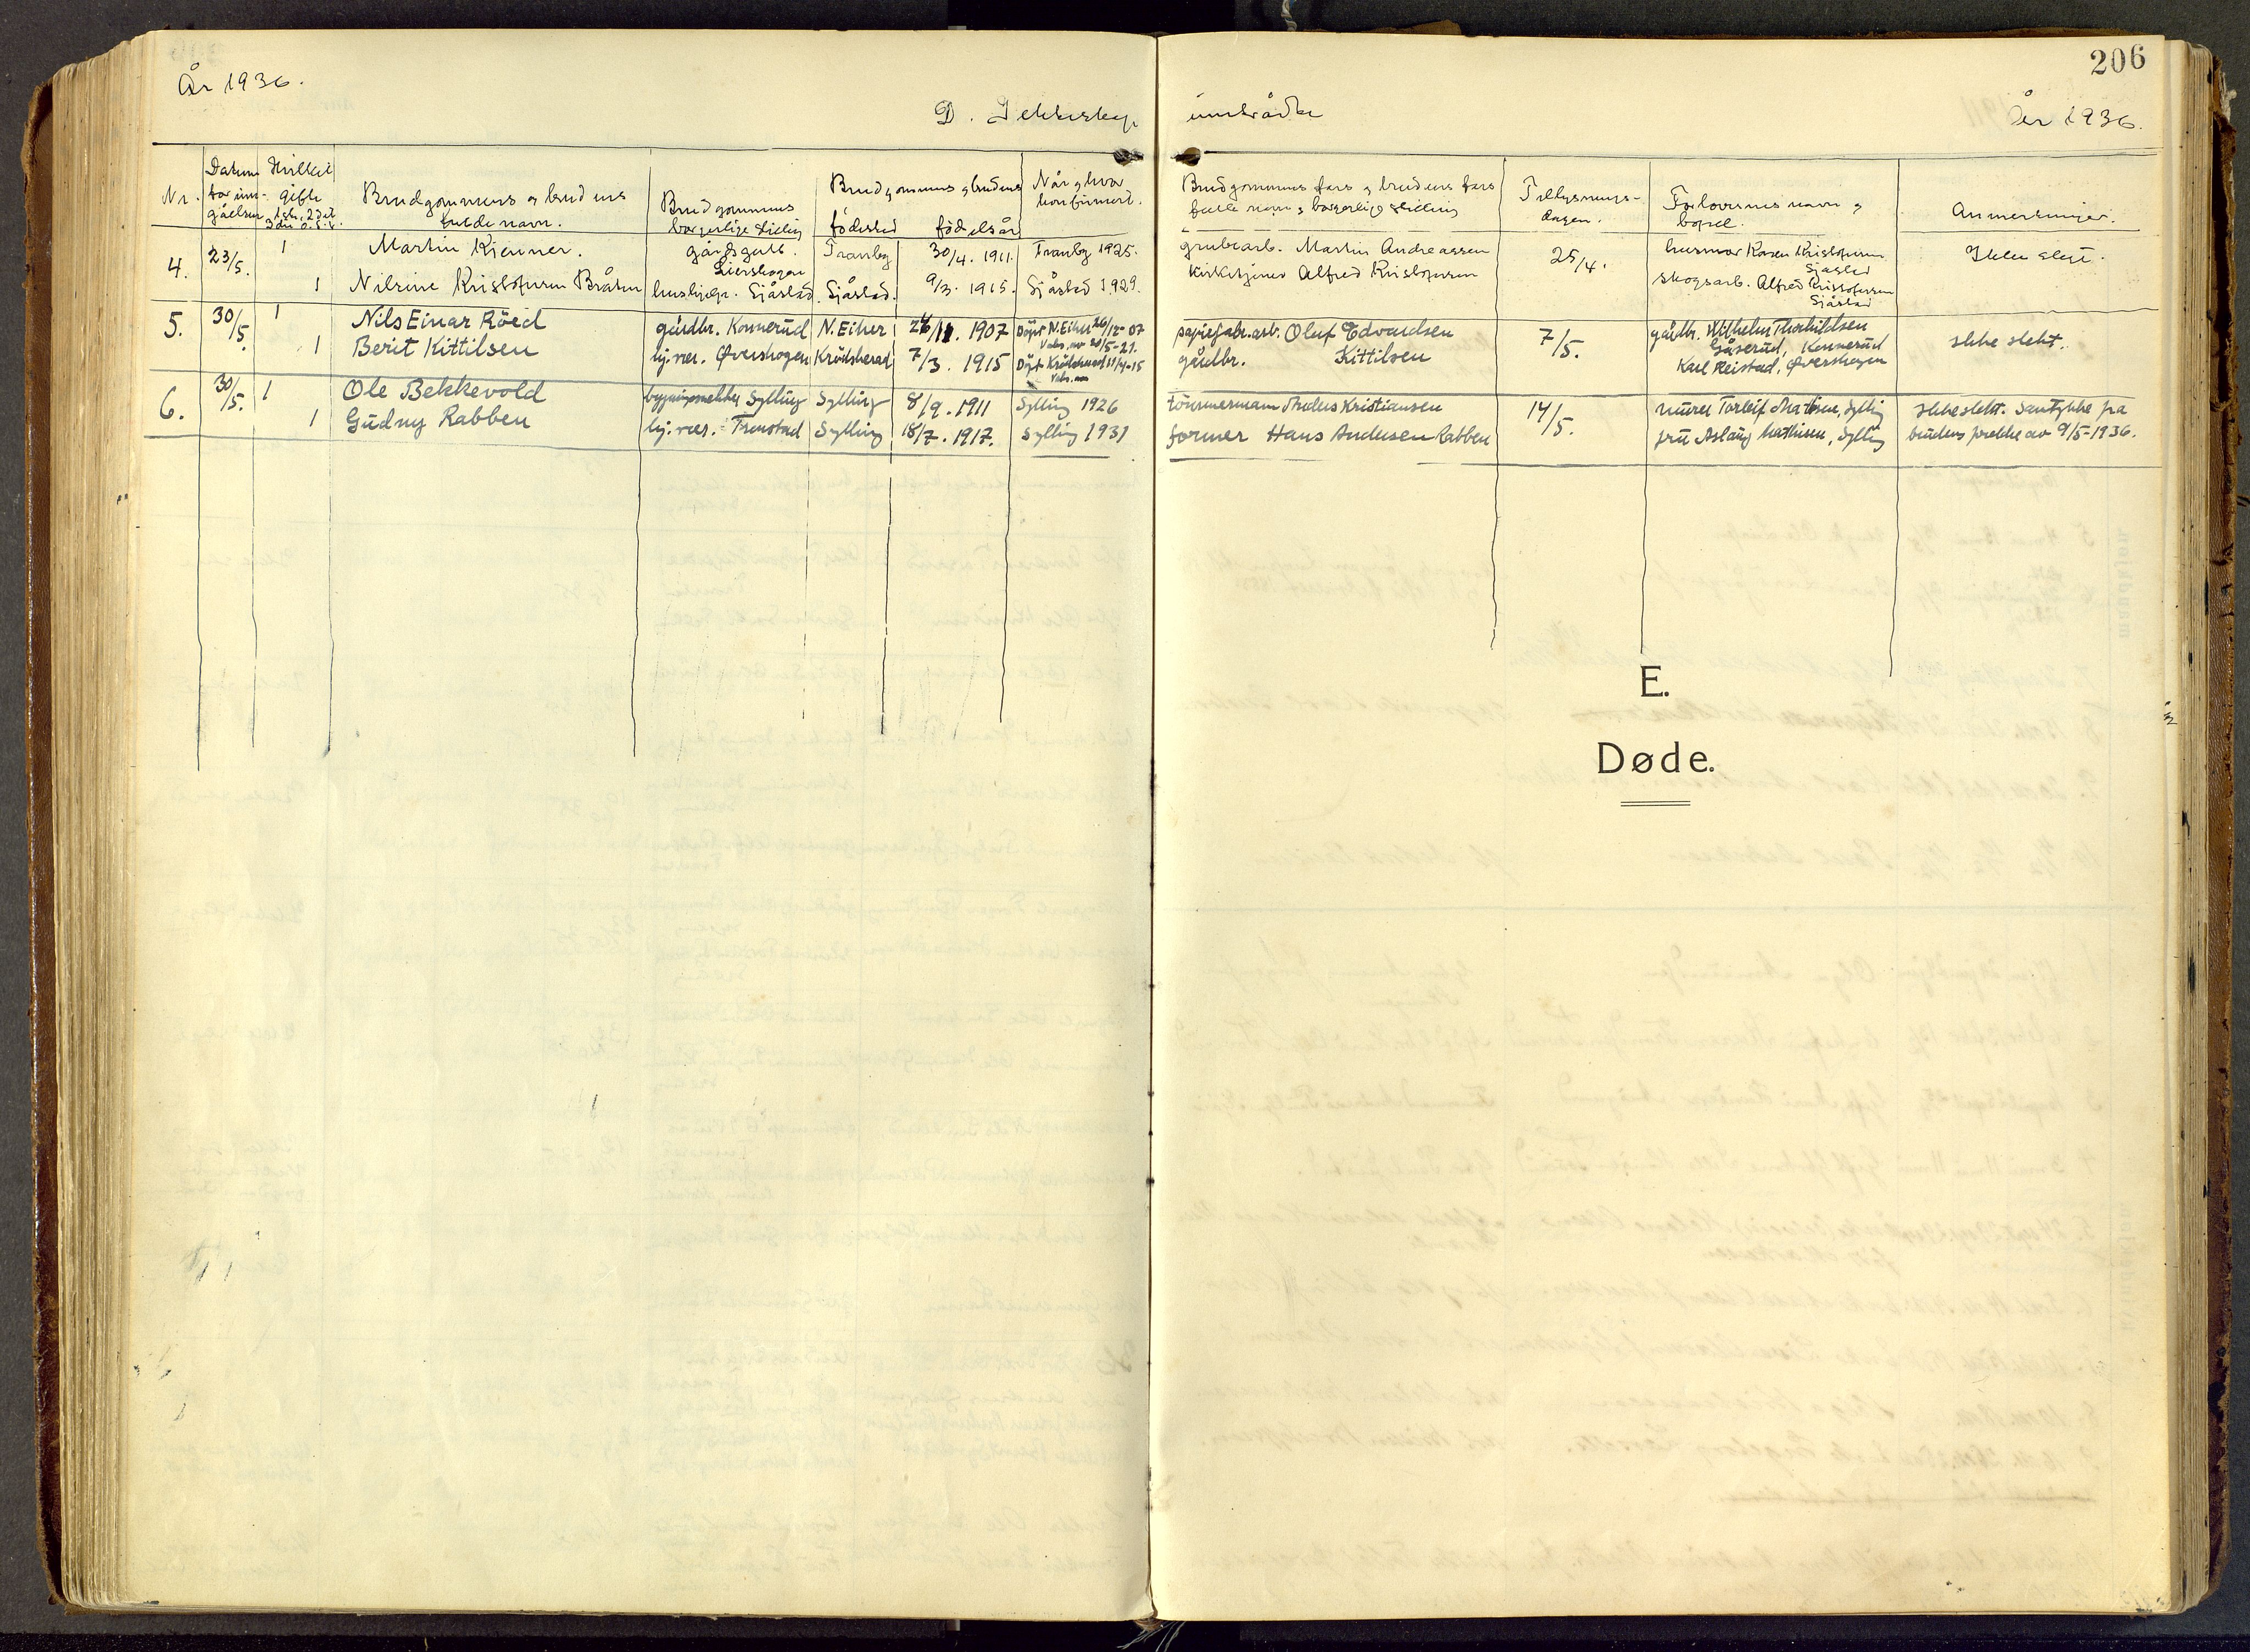 206
År 1936.
D. Ekteskap
inntrådte
År 1936.
Nr. Datum for inn-gåelsen Hvilket gifte 1ste, 2det, 3die Brudgommens og brudens fulde navn. Brudgommens borgerlige stilling Brudgommens og brudens fødested fødselsår Når og hvor konfirmert. Brudgommens fars og brudens fars fulle navn og borgerlige stilling Tillysnings-dagen. Forlovernes navn og bopel. Anmerkninger.
4. 23/5. 1 Martin Kjenner. gårdsgutt. Lierskogen Tranby 30/4. 1911. Tranby 1925. grubearb. Martin Andreassen 25/4. husmor Karen Kristofersen Sjåstad Ikke slegt.
1 Nilsine Kristofersen Bråten hushjelp. Sjåstad. Sjåstad. 9/3. 1915. Sjåstad 1929. Kirketjener Alfred Kristofersen skogsarb. Alfred Kristofersen Sjåstad
5. 30/5. 1 Nils Einar Röed gårdbr. Konnerud N. Eiker 24/11. 1907 Döpt N. Eiker 26/12-07 Vaks. av 20/5-21. papirfabr.arb. Oluf Edvardsen 7/5. gårdbr. Wilhelm Thorkildsen Gåserud, Konnerud Ikke slekt.
1 Berit Kittilsen hj. vær. Øverskogen Krödsherad 7/3. 1915 Döpt Krödsherad 11/4-15 Vaks. av gårdbr. Kittilsen Karl Reistad, Øverskogen
6. 30/5. 1 Ole Bekkevold Sylling Sylling 8/9. 1911 Sylling 1926 tömmermann Anders Kristiansen 14/5. murer Torleif Mathisen, Sylling Ikke slekt. Samtykke fra
1 Gudny Rabben hj. vær. Trenstad Sylling 18/7. 1917. Sylling 1931 former Hans Andersen Rabben fru Aslaug Mathisen, Sylling brudens foreldre av 9/5-1936.
E.
Døde.